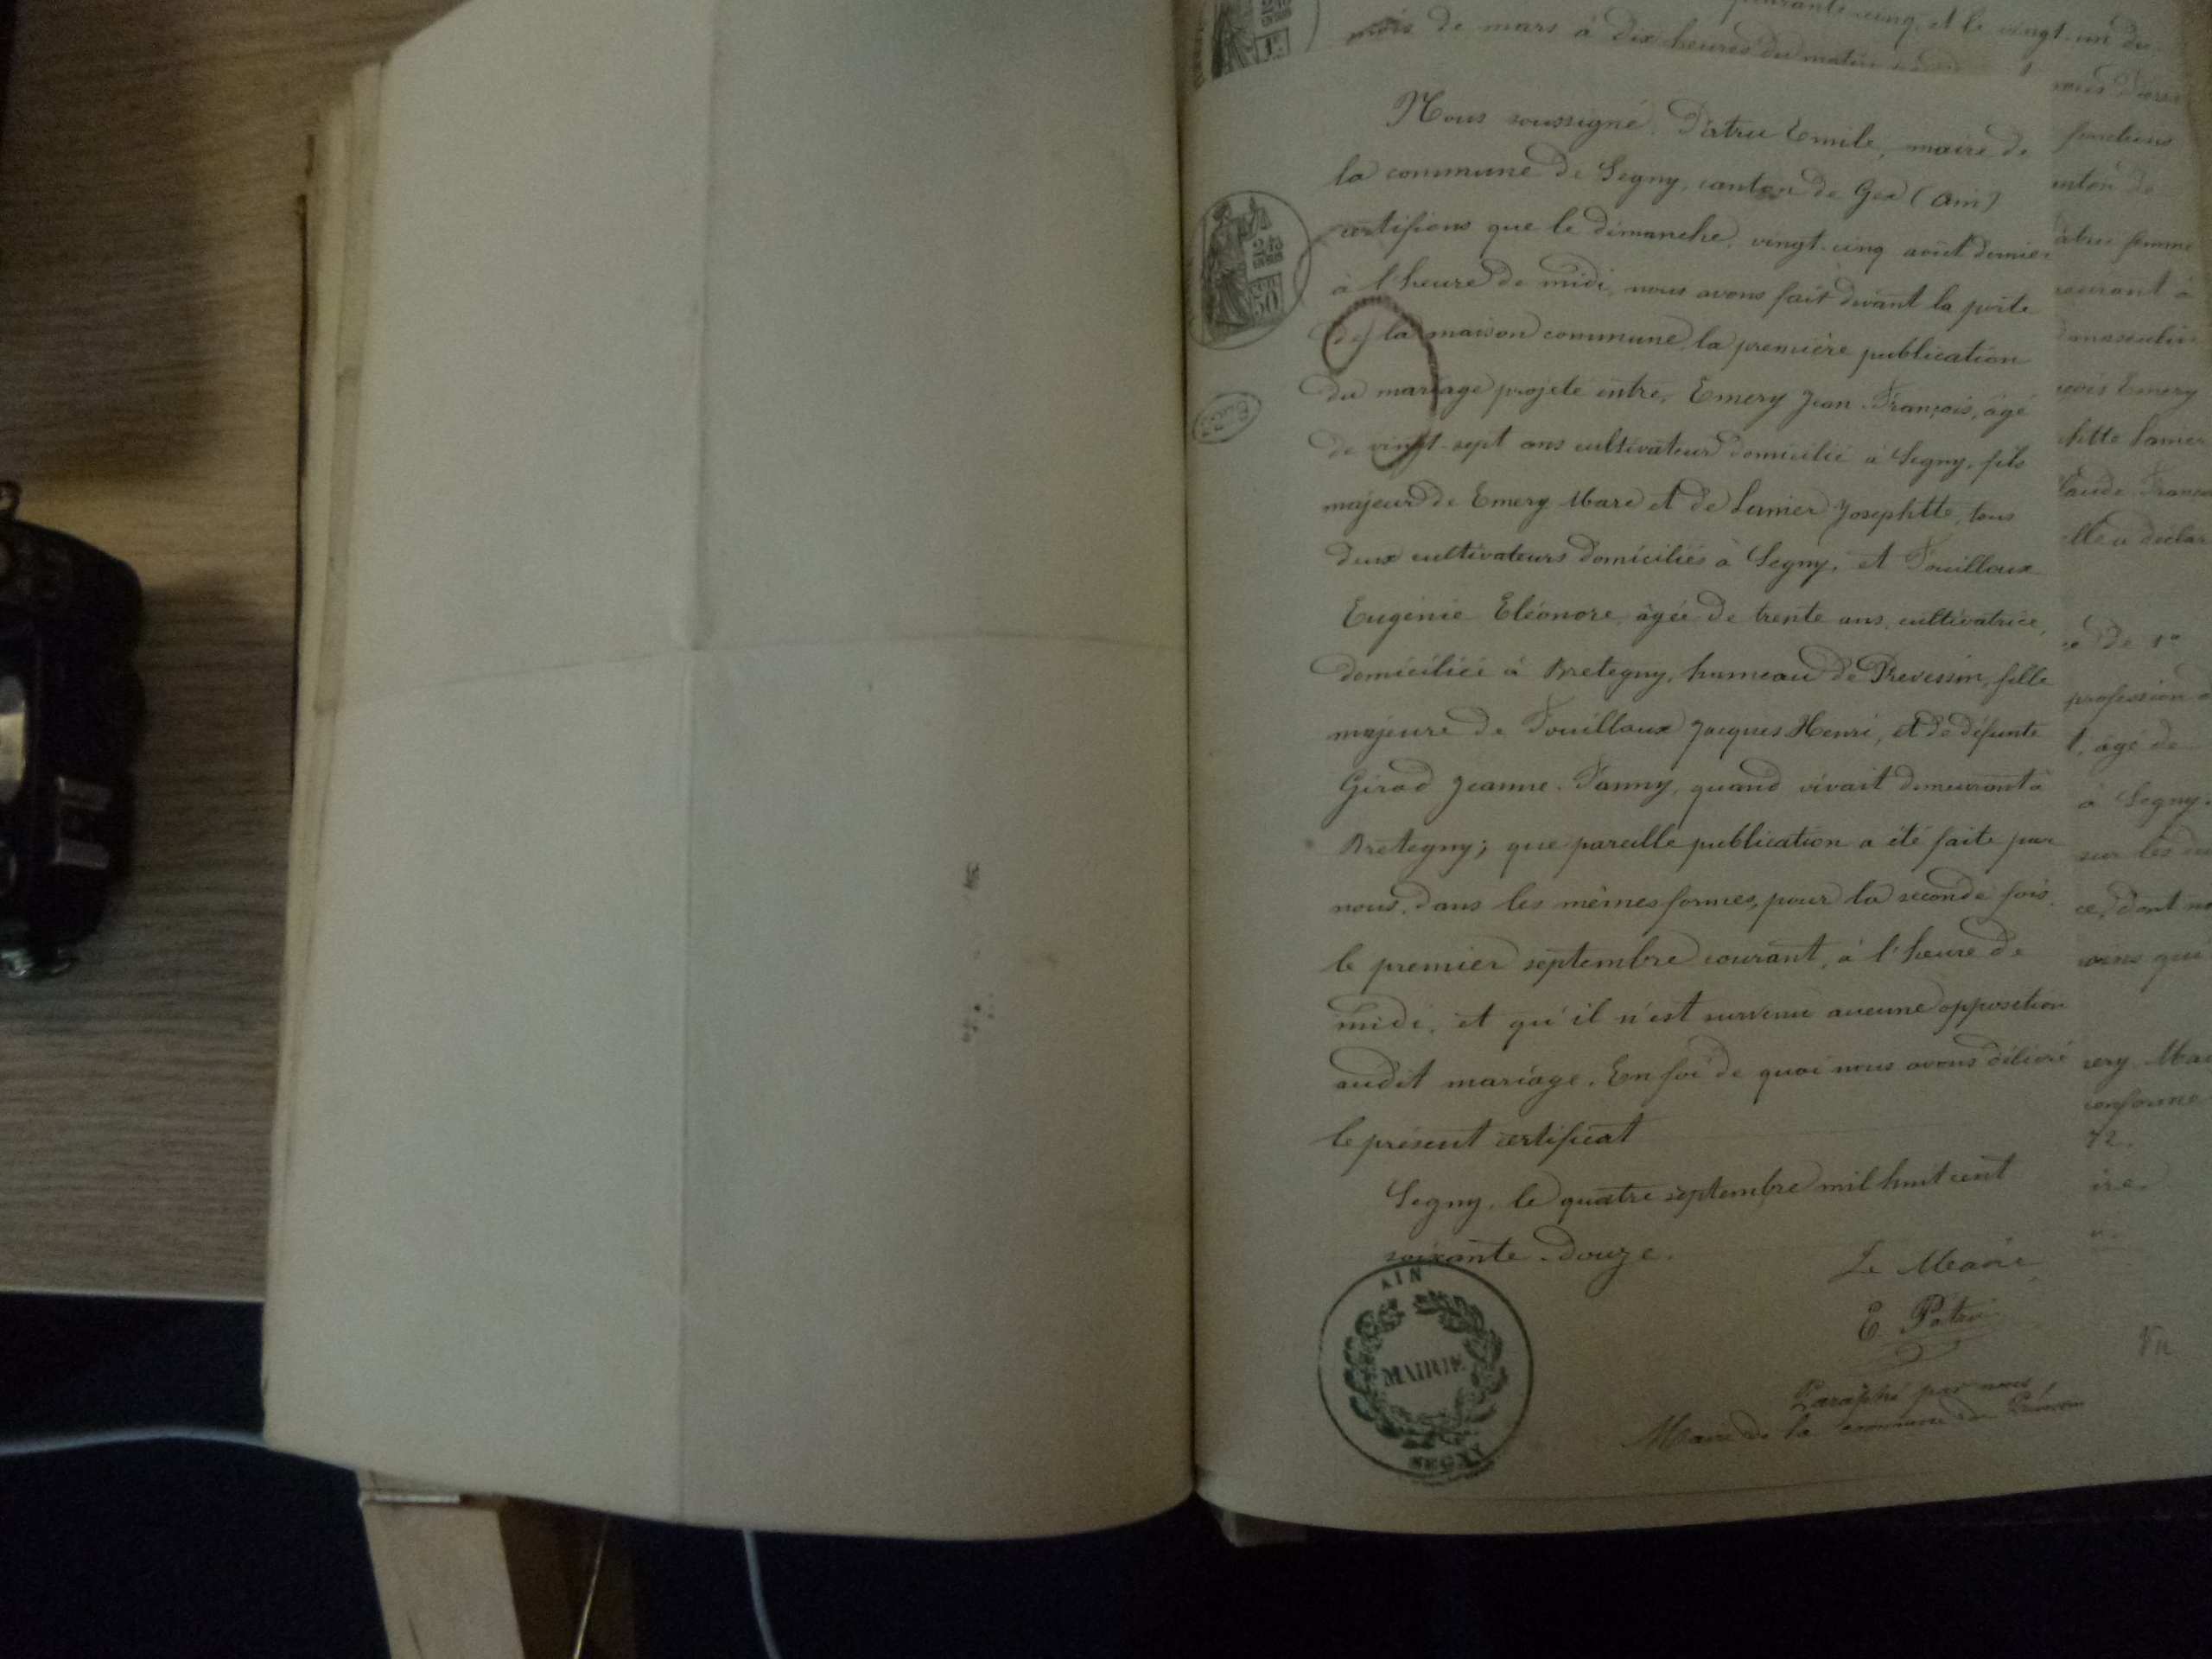 quarante cinq, et le vingt-un du
mois de mars à dix heures du matin
Nous soussigné, Emile, maire de
la commune de Segny, canton de Gex (Ain)
certifions que le dimanche, vingt-cinq août dernier
à l'heure de midi, nous avons fait devant la porte
de la maison commune, la première publication
du mariage projeté entre, Emery Jean-François, âgé
de vingt-sept ans cultivateur domicilié à Segny, fils
majeur de Emery Marc et de Lanier Josephtte, tous
deux cultivateurs domiciliés à Segny, et Fouilloux
Eugénie Eléonore, âgée de trente ans, cultivatrice,
domiciliée à Bretegny, hameau de Prevessin, fille
majeure de Fouilloux Jacques Henri, et de défunte
Girod Jeanne-Fanny, quand vivait demeurant à
Bretegny; que pareille publication a été faite par
nous, dans les mêmes formes, pour la seconde fois,
le premier septembre courant, à l'heure de
midi, et qu'il n'est survenu aucune opposition
audit mariage. En foi de quoi nous avons délivré
le présent certificat
Segny, le quatre septembre mil huit cent
soixante-douze.
Le Maire
E
Paraphé par nous,
Maire de la commune de
AIN
MAIRIE
SEGNY
2/10
EN SUS
50
fonctions
canton de
femme
courant à
Emery
Lanier
déclar
de 1°
profession d
t, âgé de
à Segny
sur les
ce, dont no
qui
ery Mar
conforme
72.
ire
Vu